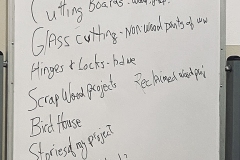 Cutting Boards - wood, 
Glass cutting - non wood parts of ww
Hinges & Locks -
Scrap Wood projects Reclaimed wood proj
Bird House
Stories of my project